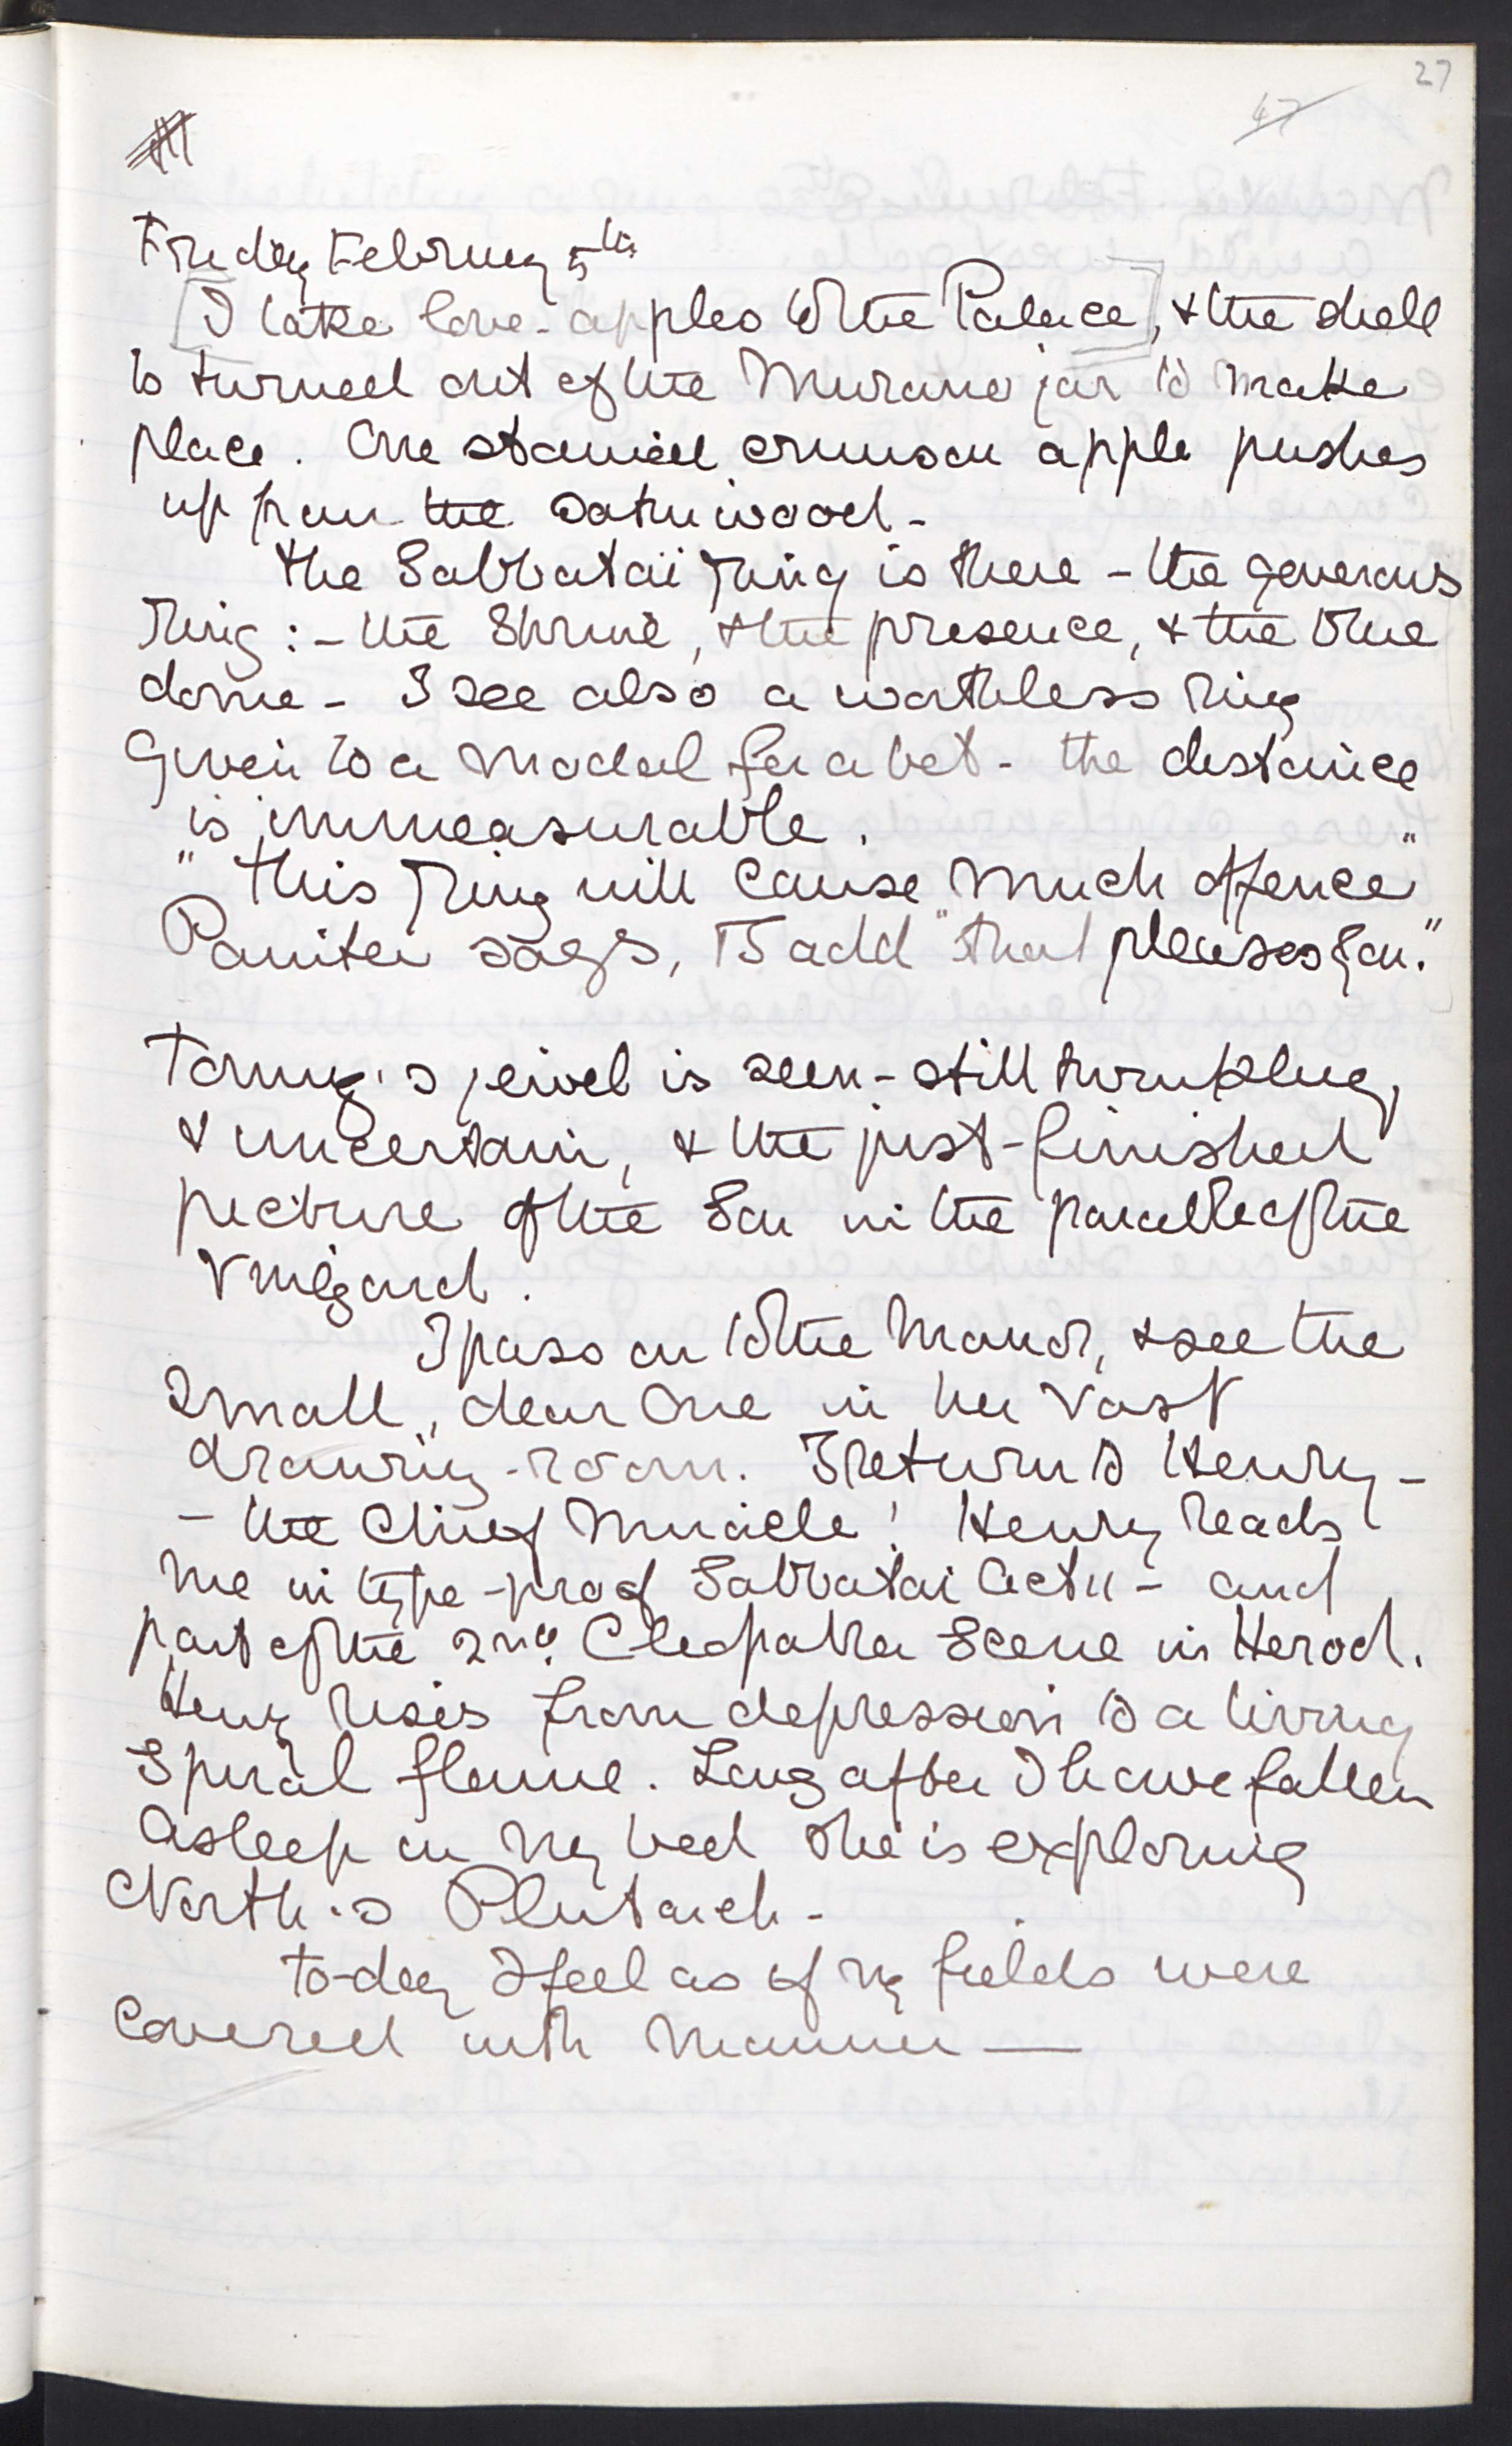 27
47
Friday February 5th
[I take love-apples to the Palace], & the shell
is turned out of the Murano jar to make
place. One stained crimson apple pushes
up from the satinwood -
The Sabbatai ring is there - the generous
ring: - the Shrine, & the presence, & the blue
dome - I see also a worthless ring
given to a model for a bet - the distance
is immeasurable.
"This ring will cause much offence"
Painter says, & I add "that pleases you."
Tommy's jewel is seen - still twinkling,
& uncertain, & the just-finished
picture of the Son in the parable of the
Vineyard.
I pass on to the Manor, & see the
small, dear One in her vast
drawing-room. I return to Henry -
- the Chief Miracle! Henry reads
me in type-proof Sabbatai Act II - and
part of the 2nd. Cleopatra Scene in Herod.
Henry rises from depression to a living
spiral flame. Long after I have fallen
asleep in my bed she is exploring
North's Plutarch -
To-day I feel as if my fields were
covered with Manna —